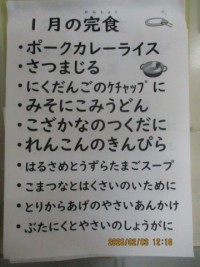 かんしょく
1月の完食
・ポークカレーライス
・さつまじる
・にくだんごのケチャップに
・みそにこみうどん
・こざかなのつくだに
・れんこんのきんぴら
・はるさめとうずらたまごスープ
・こまつなとはくさいのいために
・とりからあげのやさいあんかけ
・ぶたにくとやさいのしょうがに
2023/02/03 12:10